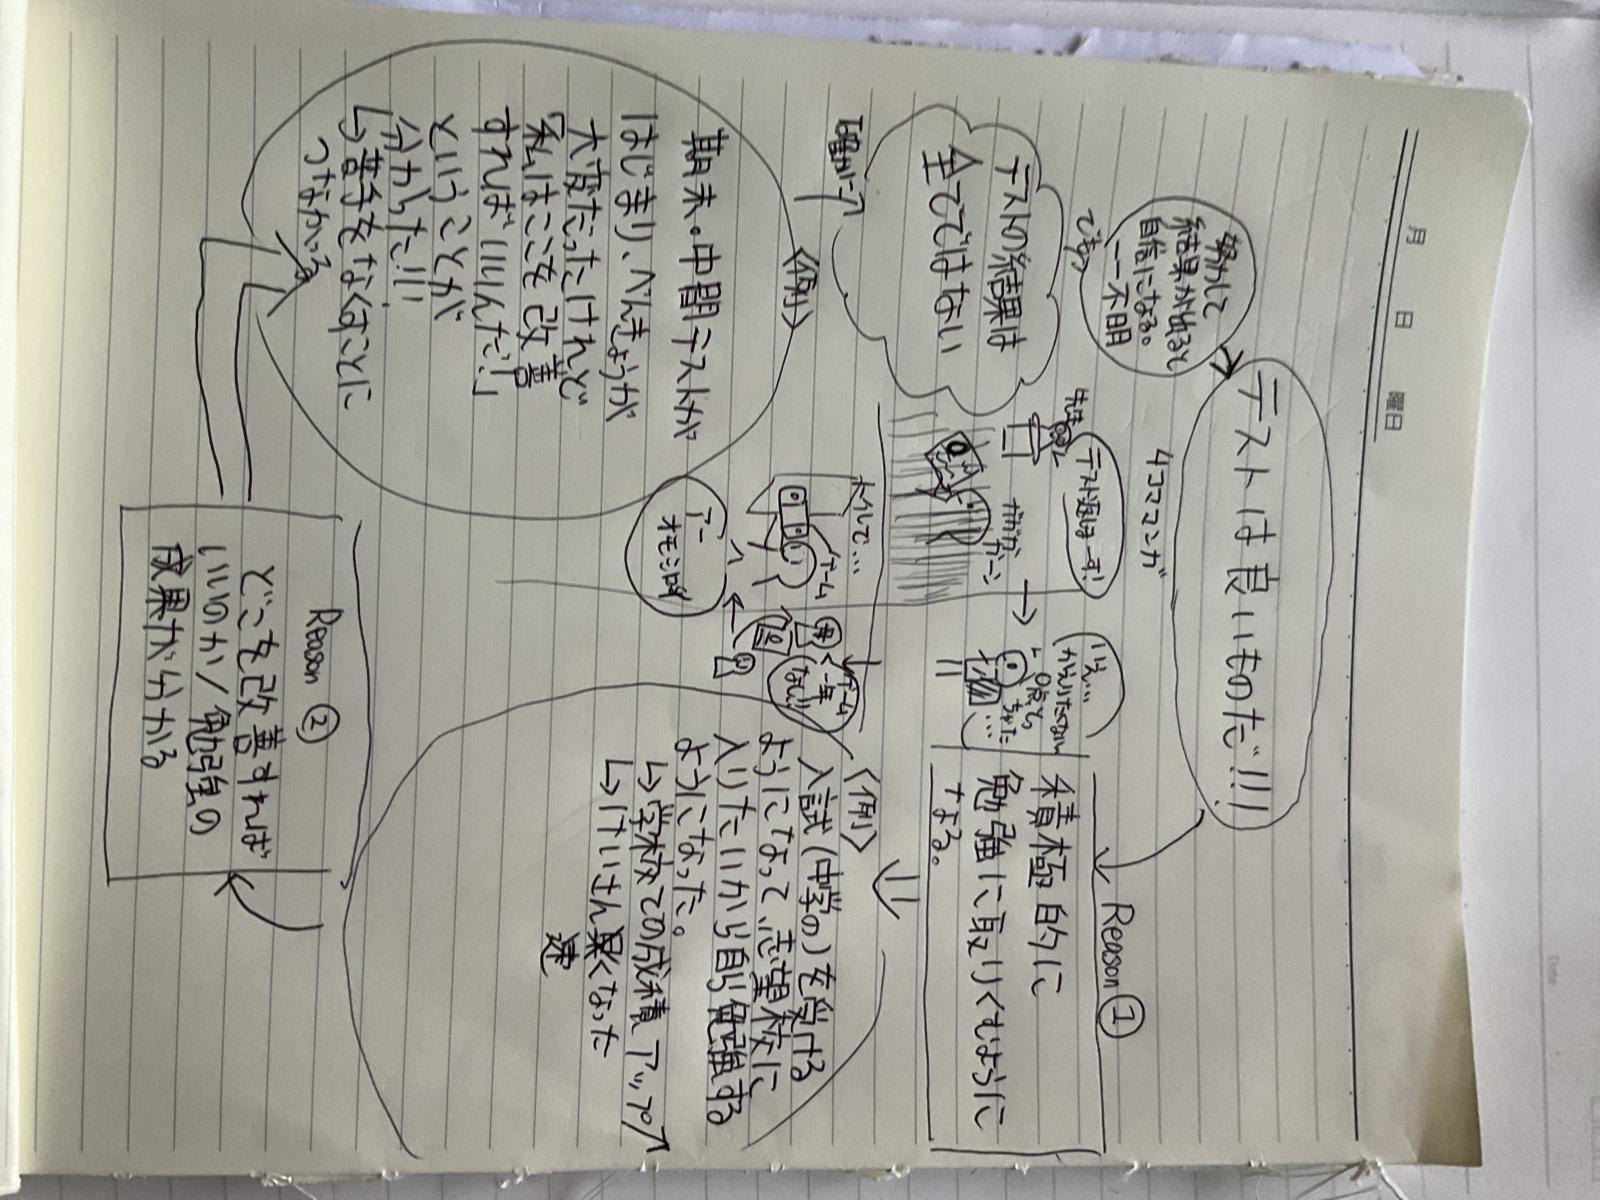 月 日 曜日
テストは良いものだ!!!
努力して
結果が出ると
自信になる。
――不明
でもっ
テストの結果は
全てではない
4コママンガ
先生
テスト返しまーす!
ガガガ
ガーン
いえ…
0点とっ
ちゃった
そして…
ゲーム
ゲーム
一年
なし!!
Reason ①
積極的に
勉強に取りくむように
なる。
〈例〉
入試(中学の)を受ける
ようになって、志望校に
入りたいから自ら勉強する
ようになった。
↳学校での成績アップ↗
↳けいさん速くなった
〈例〉
期末。中間テストが
はじまり、べんきょうが
大変だったけれど
「私はここを改善
すればいいんだ!」
ということが
分かった!!!
↳苦手をなくすことに
つながる
Reason ②
どこを改善すれば
いいのか/勉強の
成果が分かる